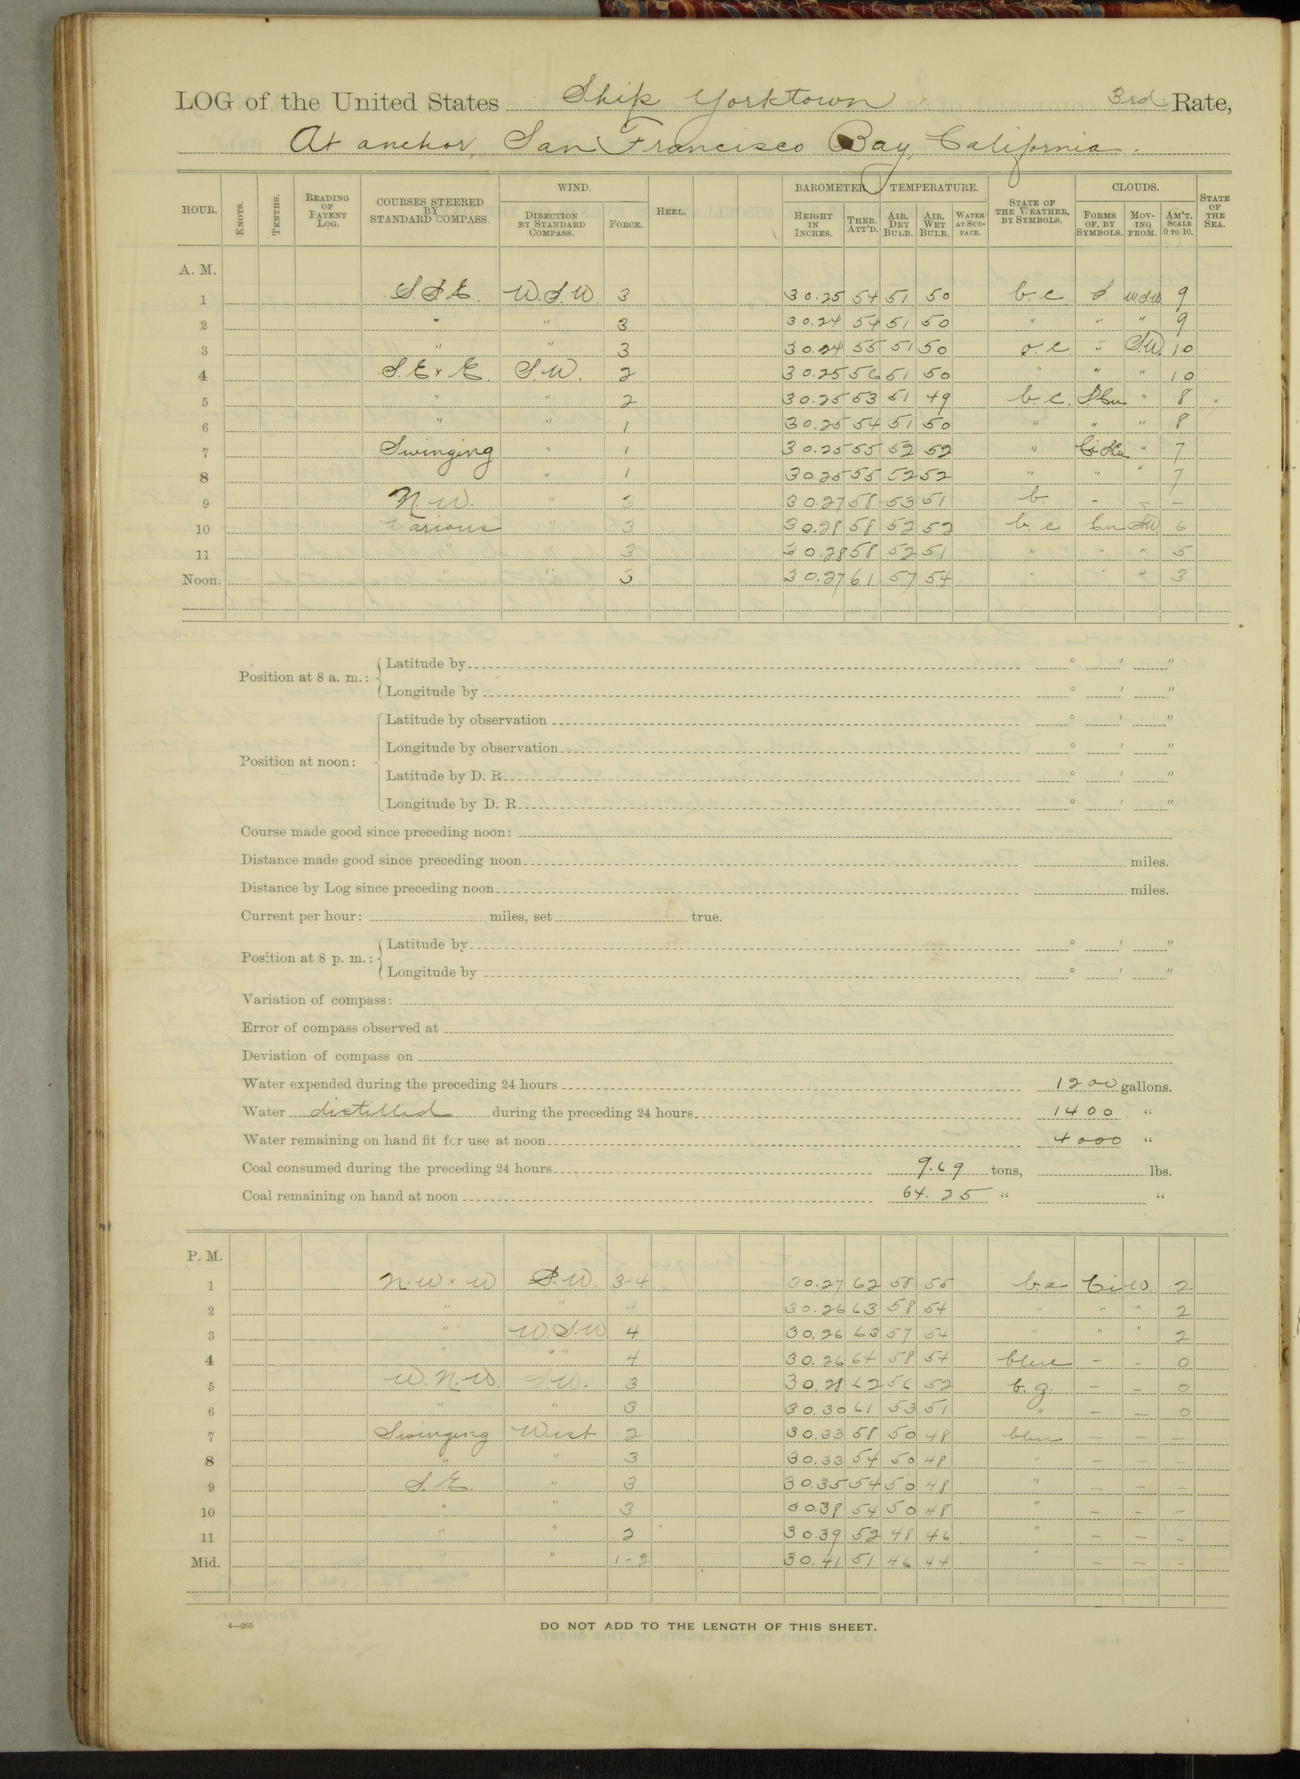 LOG of the United States Ship Yorktown 3rd Rate,
At anchor, San Francisco Bay, California.
HOUR. KNOTS. TENTHS. READING OF PATENT LOG. COURSES STEERED BY STANDARD COMPASS. WIND. DIRECTION BY STANDARD COMPASS. FORCE. HEEL. BAROMETER. HEIGHT IN INCHES. THER. ATT'D. TEMPERATURE. AIR, DRY BULB. AIR, WET BULB. WATER AT SURFACE. STATE OF THE WEATHER, BY SYMBOLS. CLOUDS. FORMS OF, BY SYMBOLS. MOVING FROM. AM'T. SCALE 0 TO 10. STATE OF THE SEA.
A. M.
1 S.S.E. W.S.W. 3 30.25 54 51 50 b.c. S WSW 9
2 " " 3 30.24 54 51 50 " " " 9
3 " " 3 30.24 55 51 50 o.c. " S.W. 10
4 S.E x E. S.W. 2 30.25 56 51 50 " " " 10
5 " " 2 30.25 53 51 49 b.c. S.Cu " 8
6 " " 1 30.25 54 51 50 " " " 8
7 Swinging " 1 30.25 55 52 52 " " 7
8 " 1 30.25 55 52 52 " " " 7
9 N.W. " 3 30.27 58 53 51 b. - - -
10 Various " 3 30.28 58 52 52 b.c Cu SW 6
11 " " 3 30.28 58 52 51 " " " 5
Noon. " " 3 30.27 61 57 54 " " " 3
Position at 8 a. m.: Latitude by ° ' "
Longitude by ° ' "
Position at noon: Latitude by observation ° ' "
Longitude by observation ° ' "
Latitude by D. R. ° ' "
Longitude by D. R. ° ' "
Course made good since preceding noon:
Distance made good since preceding noon miles.
Distance by Log since preceding noon miles.
Current per hour: miles, set true.
Position at 8 p. m.: Latitude by ° ' "
Longitude by ° ' "
Variation of compass:
Error of compass observed at
Deviation of compass on
Water expended during the preceding 24 hours 1200 gallons.
Water distilled during the preceding 24 hours 1400 "
Water remaining on hand fit for use at noon 4000 "
Coal consumed during the preceding 24 hours 9.69 tons, lbs.
Coal remaining on hand at noon 64.25 " "
P. M.
1 N.W x W S.W. 3-4 30.27 62 58 55 b.c Ci W. 2
2 " " 30.26 63 58 54 " " " 2
3 " W.S.W 4 30.26 63 57 54 " " " 2
4 " " 4 30.26 64 58 54 blue - - 0
5 W.N.W. S.W. 3 30.28 62 56 52 b.g. - - 0
6 " " 3 30.30 61 53 51 " - - 0
7 Swinging West 2 30.33 58 50 48 blue - - -
8 " " 3 30.33 54 50 48 " - - -
9 S.E. " 3 30.35 54 50 48 " - - -
10 " " 3 30.38 54 50 48 " - - -
11 " " 2 30.39 52 48 46 " - - -
Mid. " " 1-2 30.41 51 46 44 " - - -
4—265
DO NOT ADD TO THE LENGTH OF THIS SHEET.